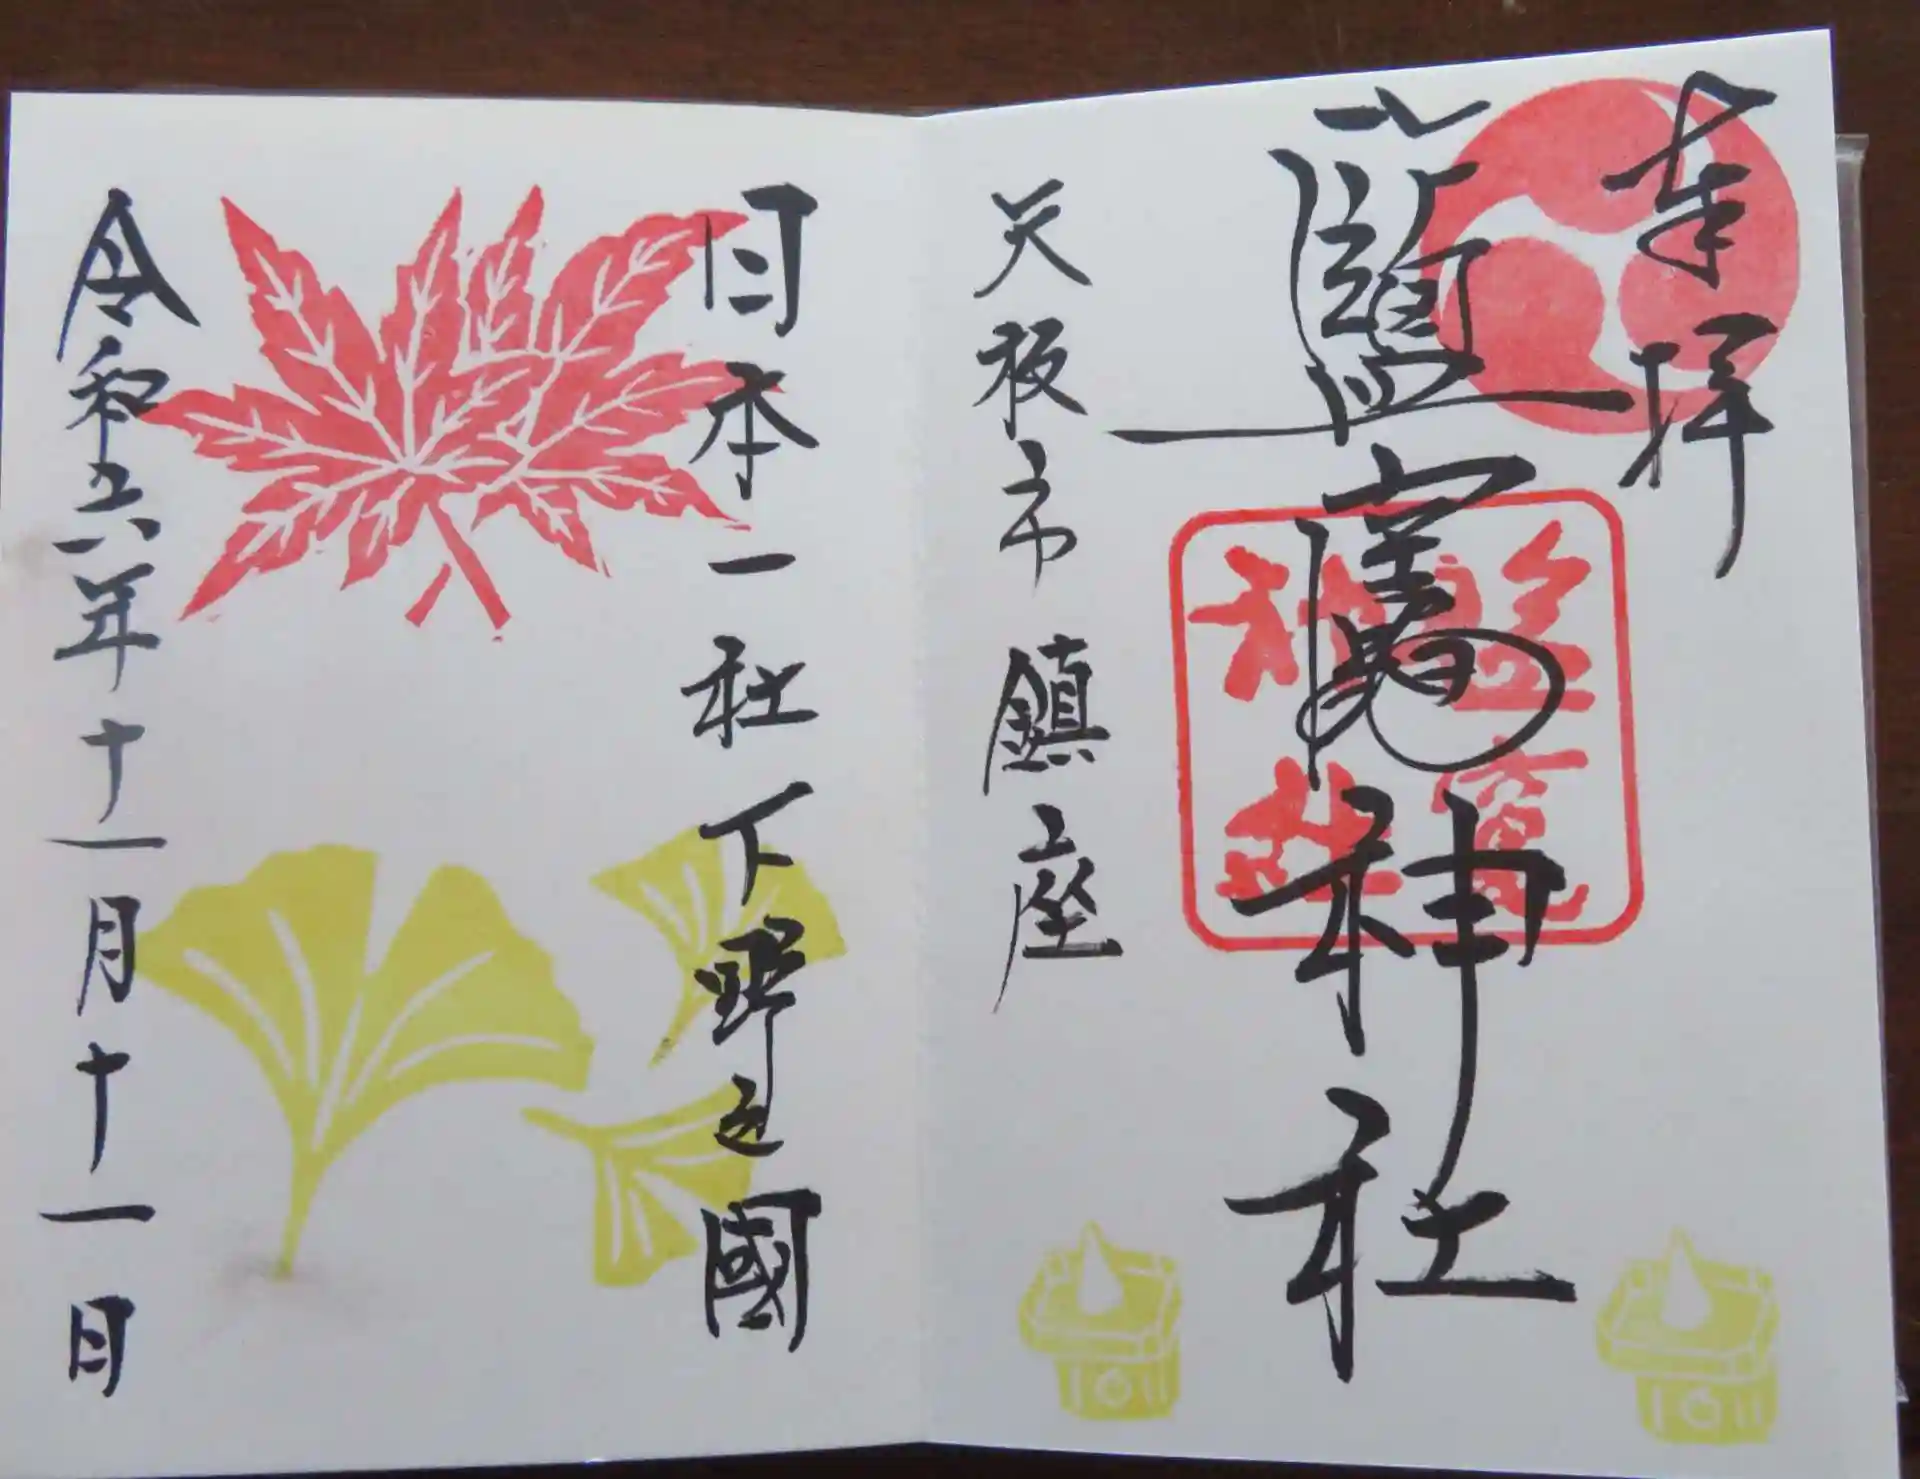 奉拝
鹽竈神社
矢板市鎮座
日本一社下野之國
令和六年十一月十一日